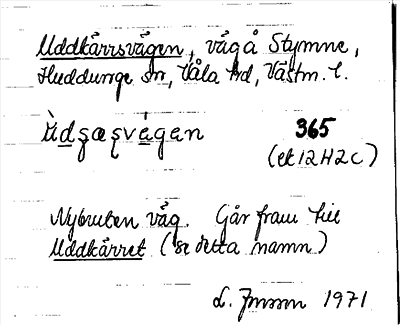 Uddkärrsvägen, väg å Stymne,
Huddunge sn, Våla hd, Västm. l.
ùdʂæʂvä́gen 365
(ek 12H2c)
Nybruten väg. Går fram till
Uddkärret (se detta namn)
L. 1971